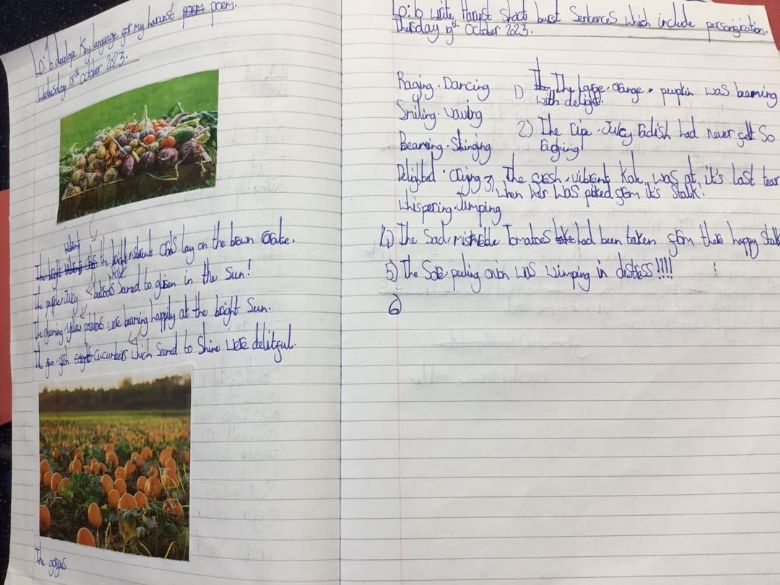 Lo: to develop key language for my harvest poem.
Wednesday 18th October 2023.
the bright vibrant crops lay on the brown crate.
The purple juicy seemed to glisen in the sun!
The gleaming yellow potatoes were beaming happily at the bright sun.
The fresh cucumbers which seemed to shine were delitful.
The
Lo: to write Harvest short burst Sentences which include personification.
Thursday 19th October 2023.
Raging. Dancing
Smiling. waving
Beaming. Singing
Delighted. crying
whispering. Jumping
1) The large. orange. pumpkin was beaming
with delight.
2) The Ripe. Juicy Radish had never felt So
3) The fresh. vibrant Kale, was at it's last tear
when her was picked from it's stalk.
4) The Sad. Tomatoes had been taken from thair happy Stalk
5) The Sore. peeling onion was wimping in distess!!!!
6